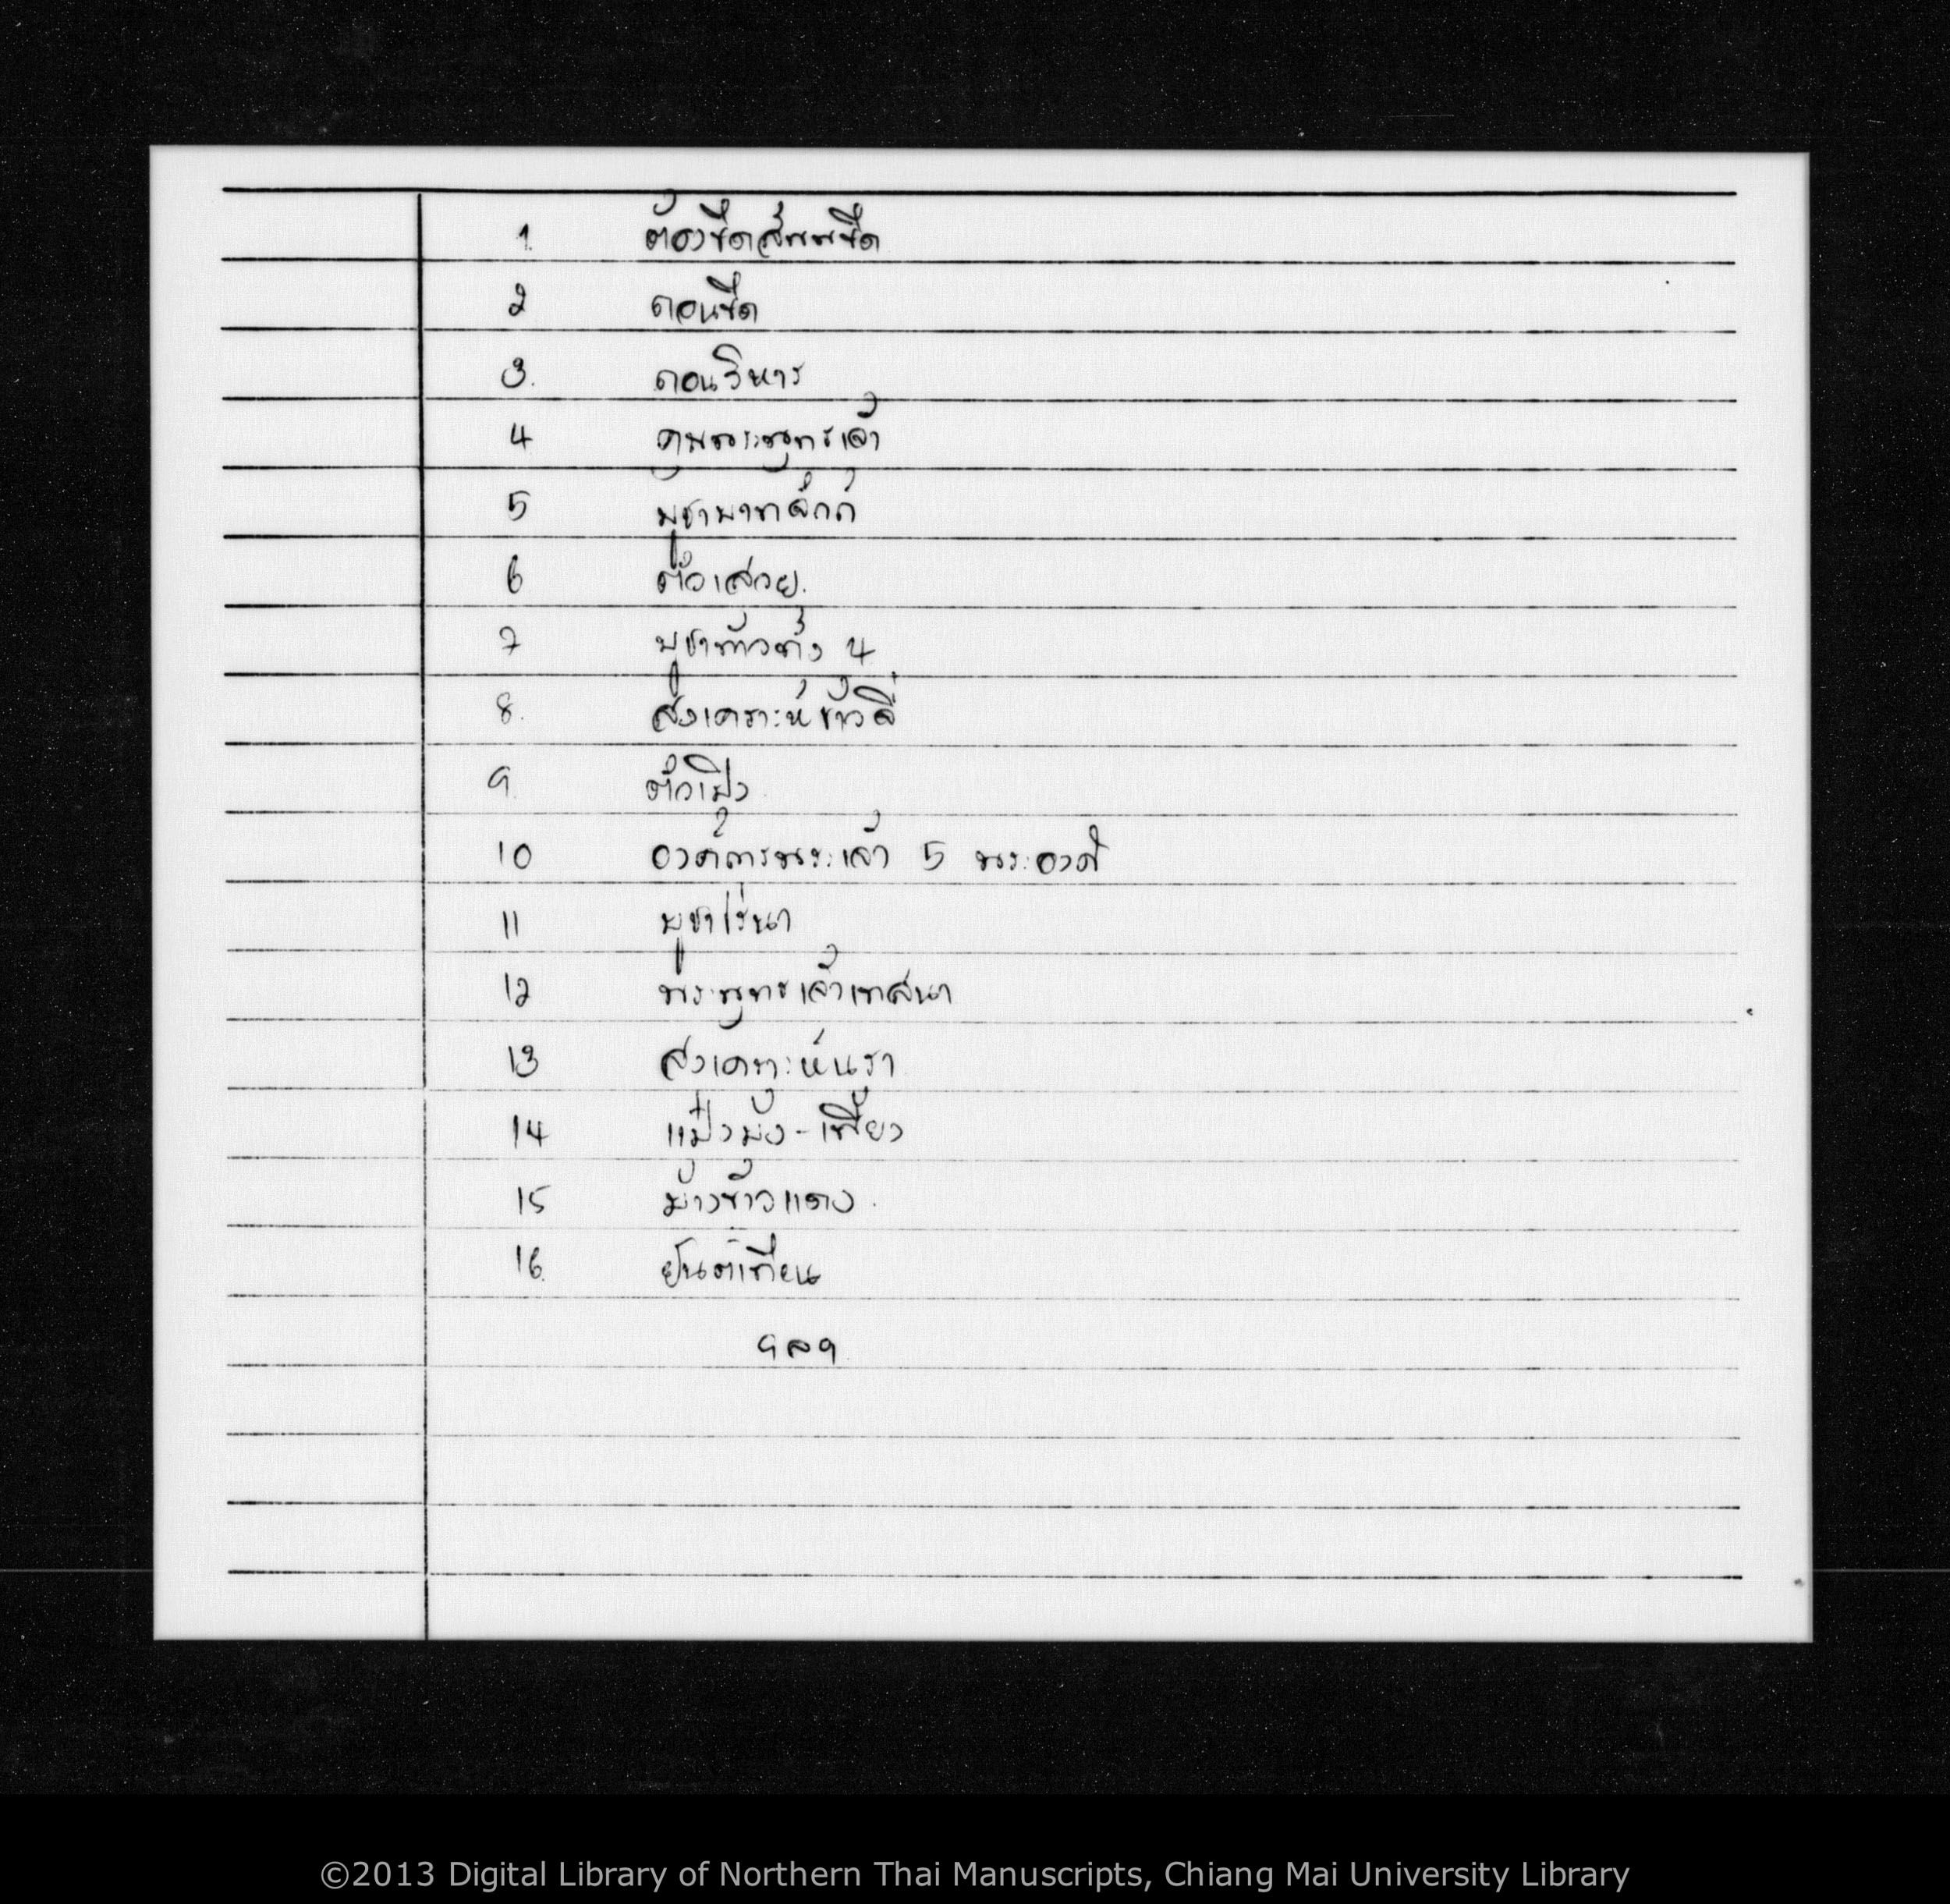 1. ต้องขึดสัพพขึด
2 ถอนขึด
3. ถอนวิหาร
4 คุณพระพุทธเจ้า
5
6 ตัวเสวย.
7 บูชาท้าวทั้ง 4
8. สังเคราะห์ข้าวลี่
9. ตัวเปิ้ง
10 องค์การพระเจ้า 5 พระองค์
11 บูชาไร่นา
12 พระพุทธเจ้าเทศนา
13 สังเคราะห์นรา
14
15 ม้างข้าวแดง.
16. ยันต์เทียน
ฯลฯ
©2013 Digital Library of Northern Thai Manuscripts, Chiang Mai University Library